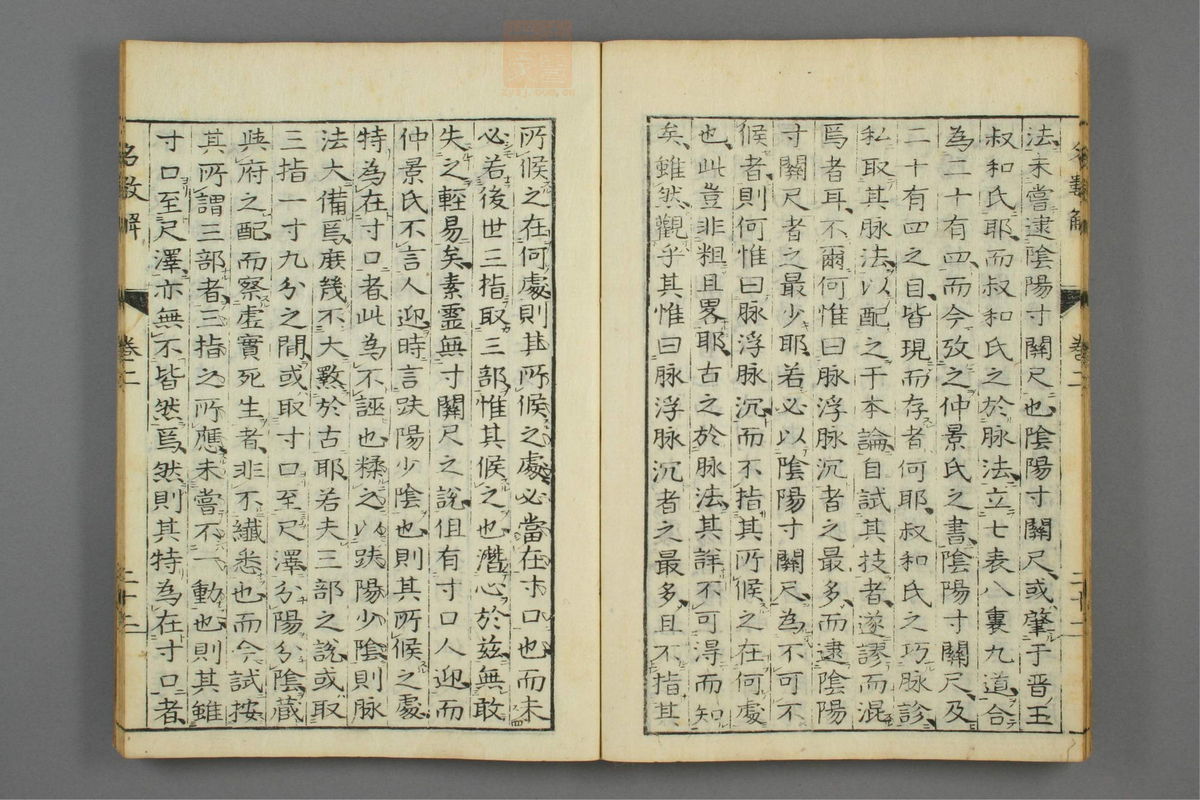 法未嘗逮陰陽寸關尺也陰陽寸關尺或肇于晋王
叔和氏耶而叔和氏之於脉法立七表八裏九道合
為二十有四而今攷之仲景氏之書陰陽寸關尺及
二十有四之目皆現而存者何耶叔和氏之巧脉診
私取其脉法以配之于本論自試其技者遂謬而混
焉者耳不爾何惟曰脉浮脉沉者之最多而逮陰陽
寸關尺者之最少耶若必以陰陽寸關尺為不可不
候者則何惟曰脉浮脉沉而不指其所候之在何處
也此豈非粗且畧耶古之於脉法其詳不可得而知
矣雖然觀乎其惟曰脉浮脉沉者之最多且不指其
名數解 卷二 二十二
所候之在何處則其所候之處必當在寸口也而未
必若後世三指取三部惟其候之也潛心於茲無敢
失之輕易矣素靈無寸關尺之說但有寸口人迎而
仲景氏不言人迎時言趺陽少陰也則其所候之處
特為在寸口者此為不誣也糅之以趺陽少陰則脉
法大備焉庶幾不大斁於古耶若夫三部之說或取
三指一寸九分之間或取寸口至尺澤分陽分陰藏
與府之配而察虛實死生者非不纖悉也而今試按
其所謂三部者三指之所應未嘗不一動也則其雖
寸口至尺澤亦無不皆然焉然則其特為在寸口者
名數解 卷二 二十三